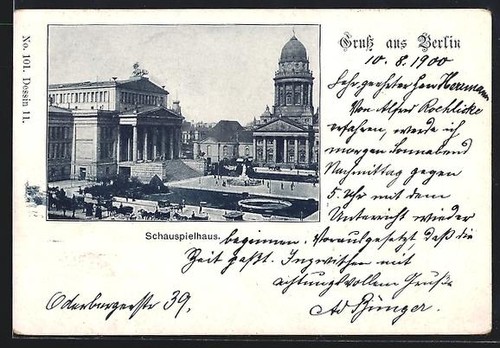 No. 101. Dessin 11.
Gruß aus Berlin
10.8.1900
Sehr geehrter Herr Herrmann
Von Alfred Rochlicke
erfahren, werde ich
morgen Sonnabend
Nachmittag gegen
5. Uhr mit dem
Unterricht wieder
Schauspielhaus. beginnen. Vorausgesetzt daß die
Zeit paßt. Inzwischen mit
achtungsvollem Gruße
Oderbergerstr 39. Ad Bünger.